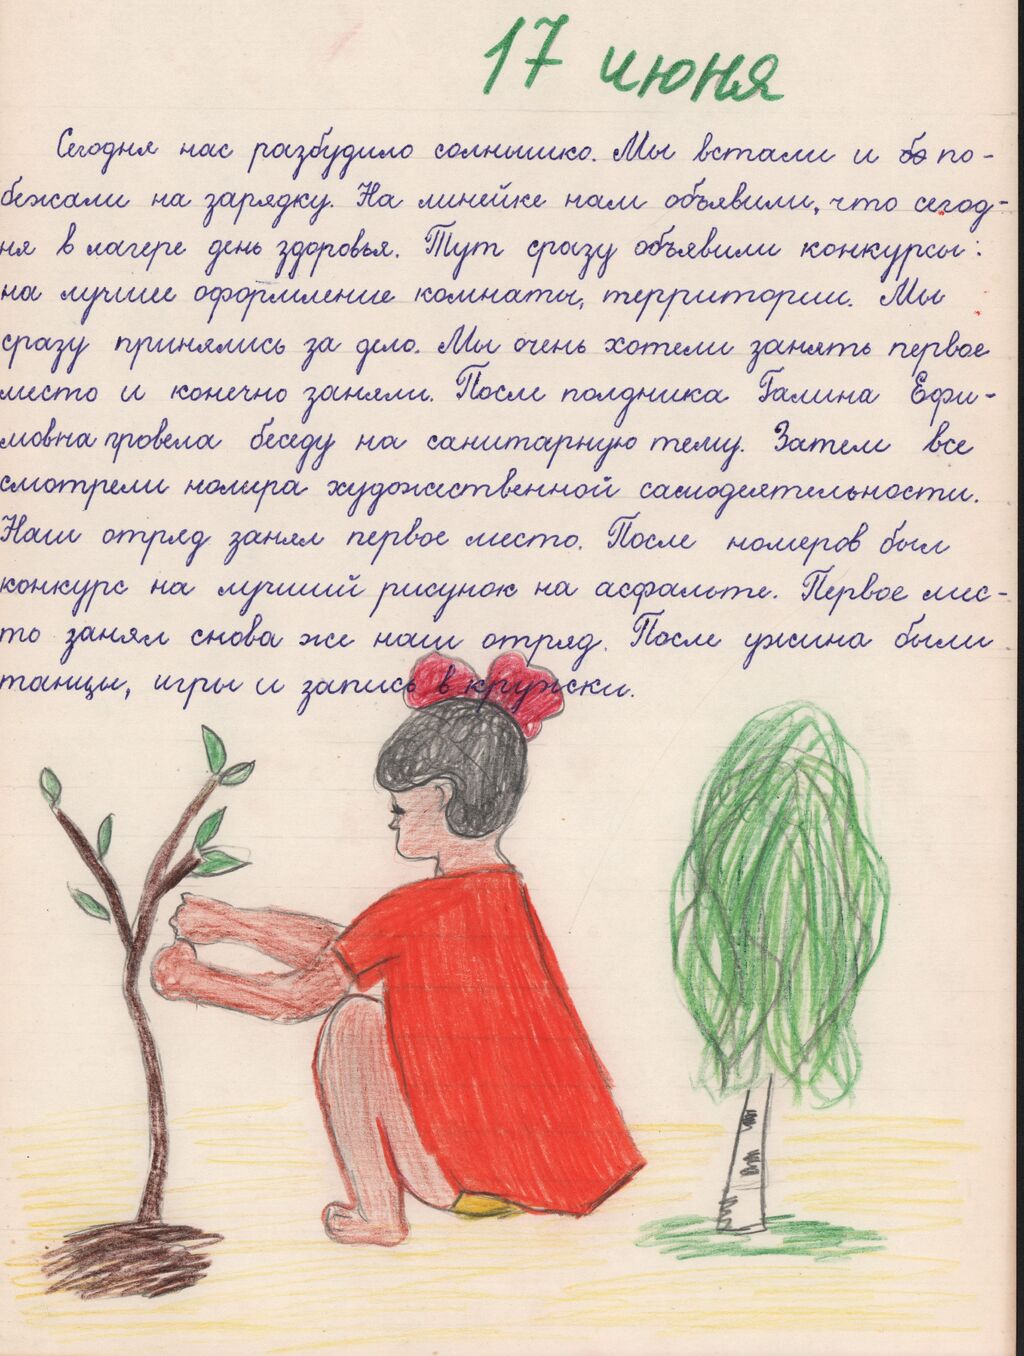 17 июня
Сегодня нас разбудило солнышко. Мы встали и по-
бежали на зарядку. На линейке нам объявили, что сегод-
ня в лагере день здоровья. Тут сразу объявили конкурсы:
на лучшее оформление комнаты, территории. Мы
сразу принялись за дело. Мы очень хотели занять первое
место и конечно заняли. После полдника Галина Ефи-
мовна провела беседу на санитарную тему. Затем все
смотрели номера художественной самодеятельности.
Наш отряд занял первое место. После номеров был
конкурс на лучший рисунок на асфальте. Первое мес-
то занял снова же наш отряд. После ужина были
танцы, игры и запись в кружки.